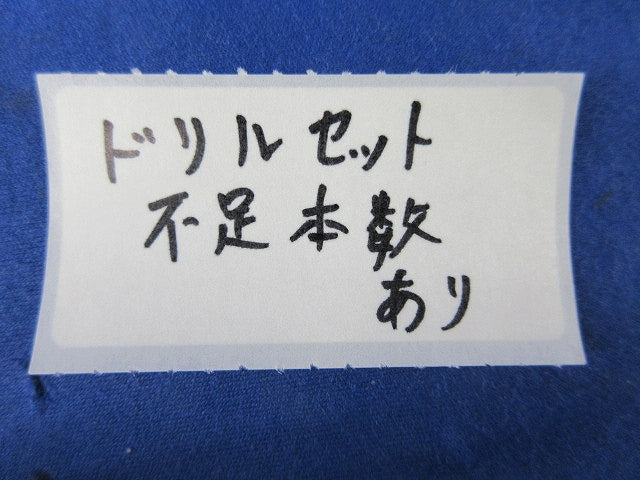 ドリルセット
不足本数
あり